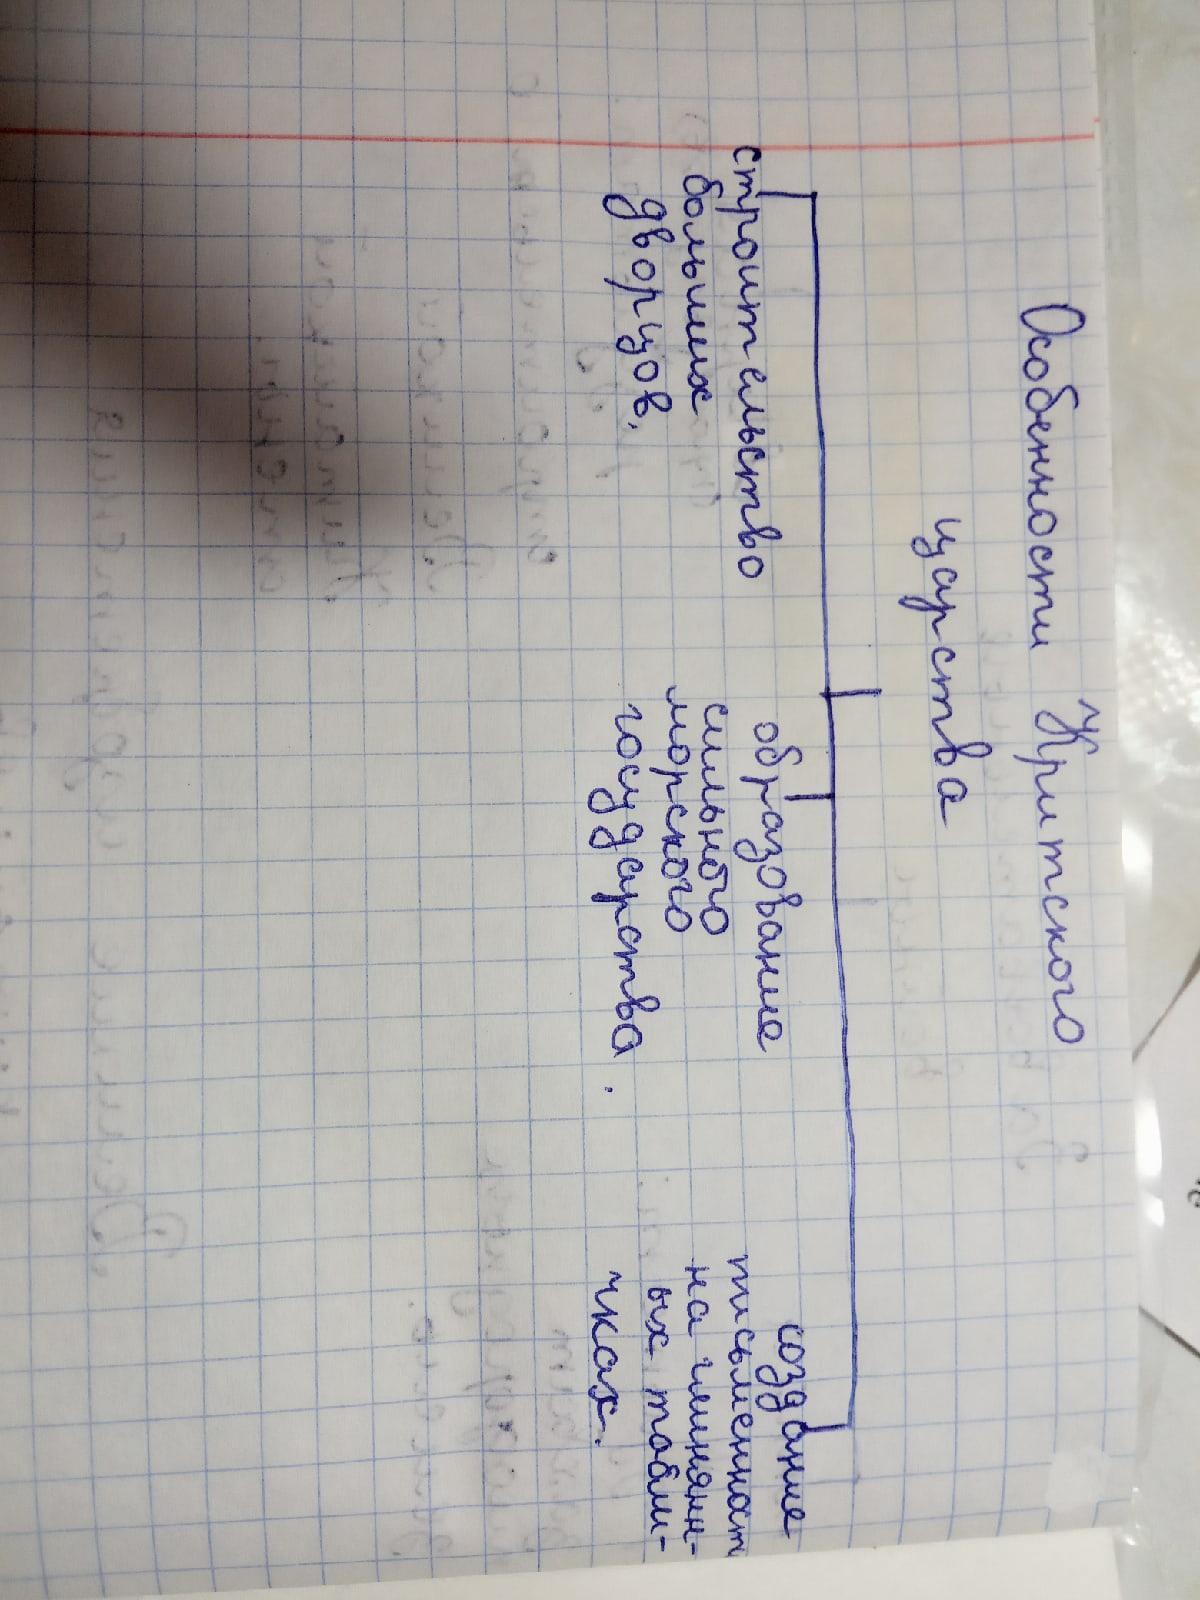 Особенности Критского
царства
строительство
больших
дворцов.
образование
сильного
морского
государства.
создание
письменност
на глинянн-
ых табли-
чках.